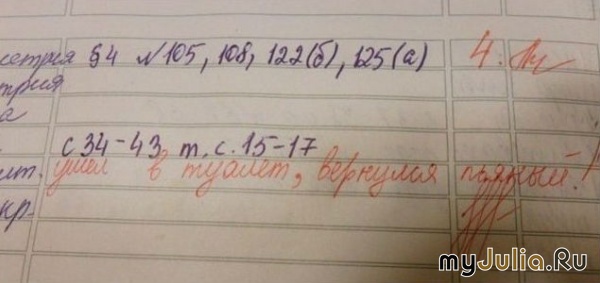 метрия §4 №105, 108, 122(б), 125(а) 4.
трия
а
с 34-43, т. с. 15-17
ит. ушел в туалет, вернулся пьяный!
кр.
myJulia.Ru